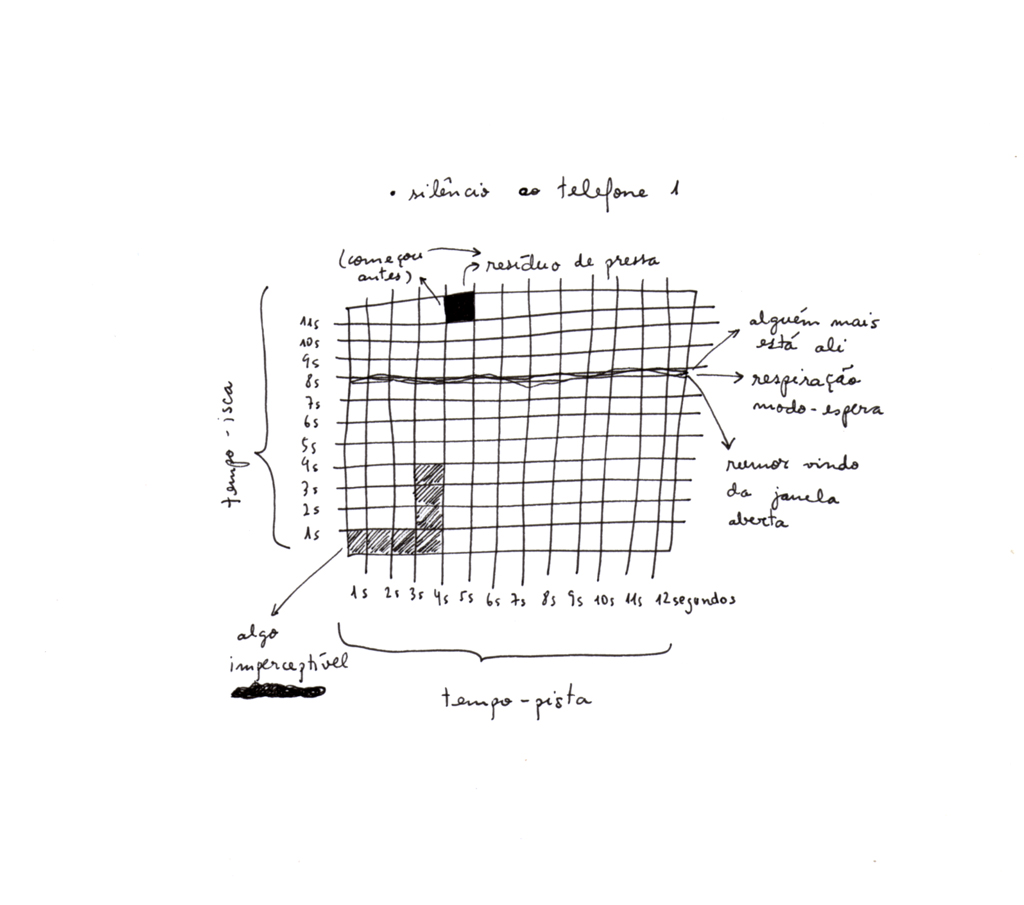 • silêncio ao telefone 1
(começou
antes)
resíduo de pressa
11s
10s
9s
8s
7s
6s
5s
4s
3s
2s
1s
tempo-isca
alguém mais
está ali
respiração
modo-espera
rumor vindo
da janela
aberta
1s 2s 3s 4s 5s 6s 7s 8s 9s 10s 11s 12segundos
algo
imperceptível
tempo-pista